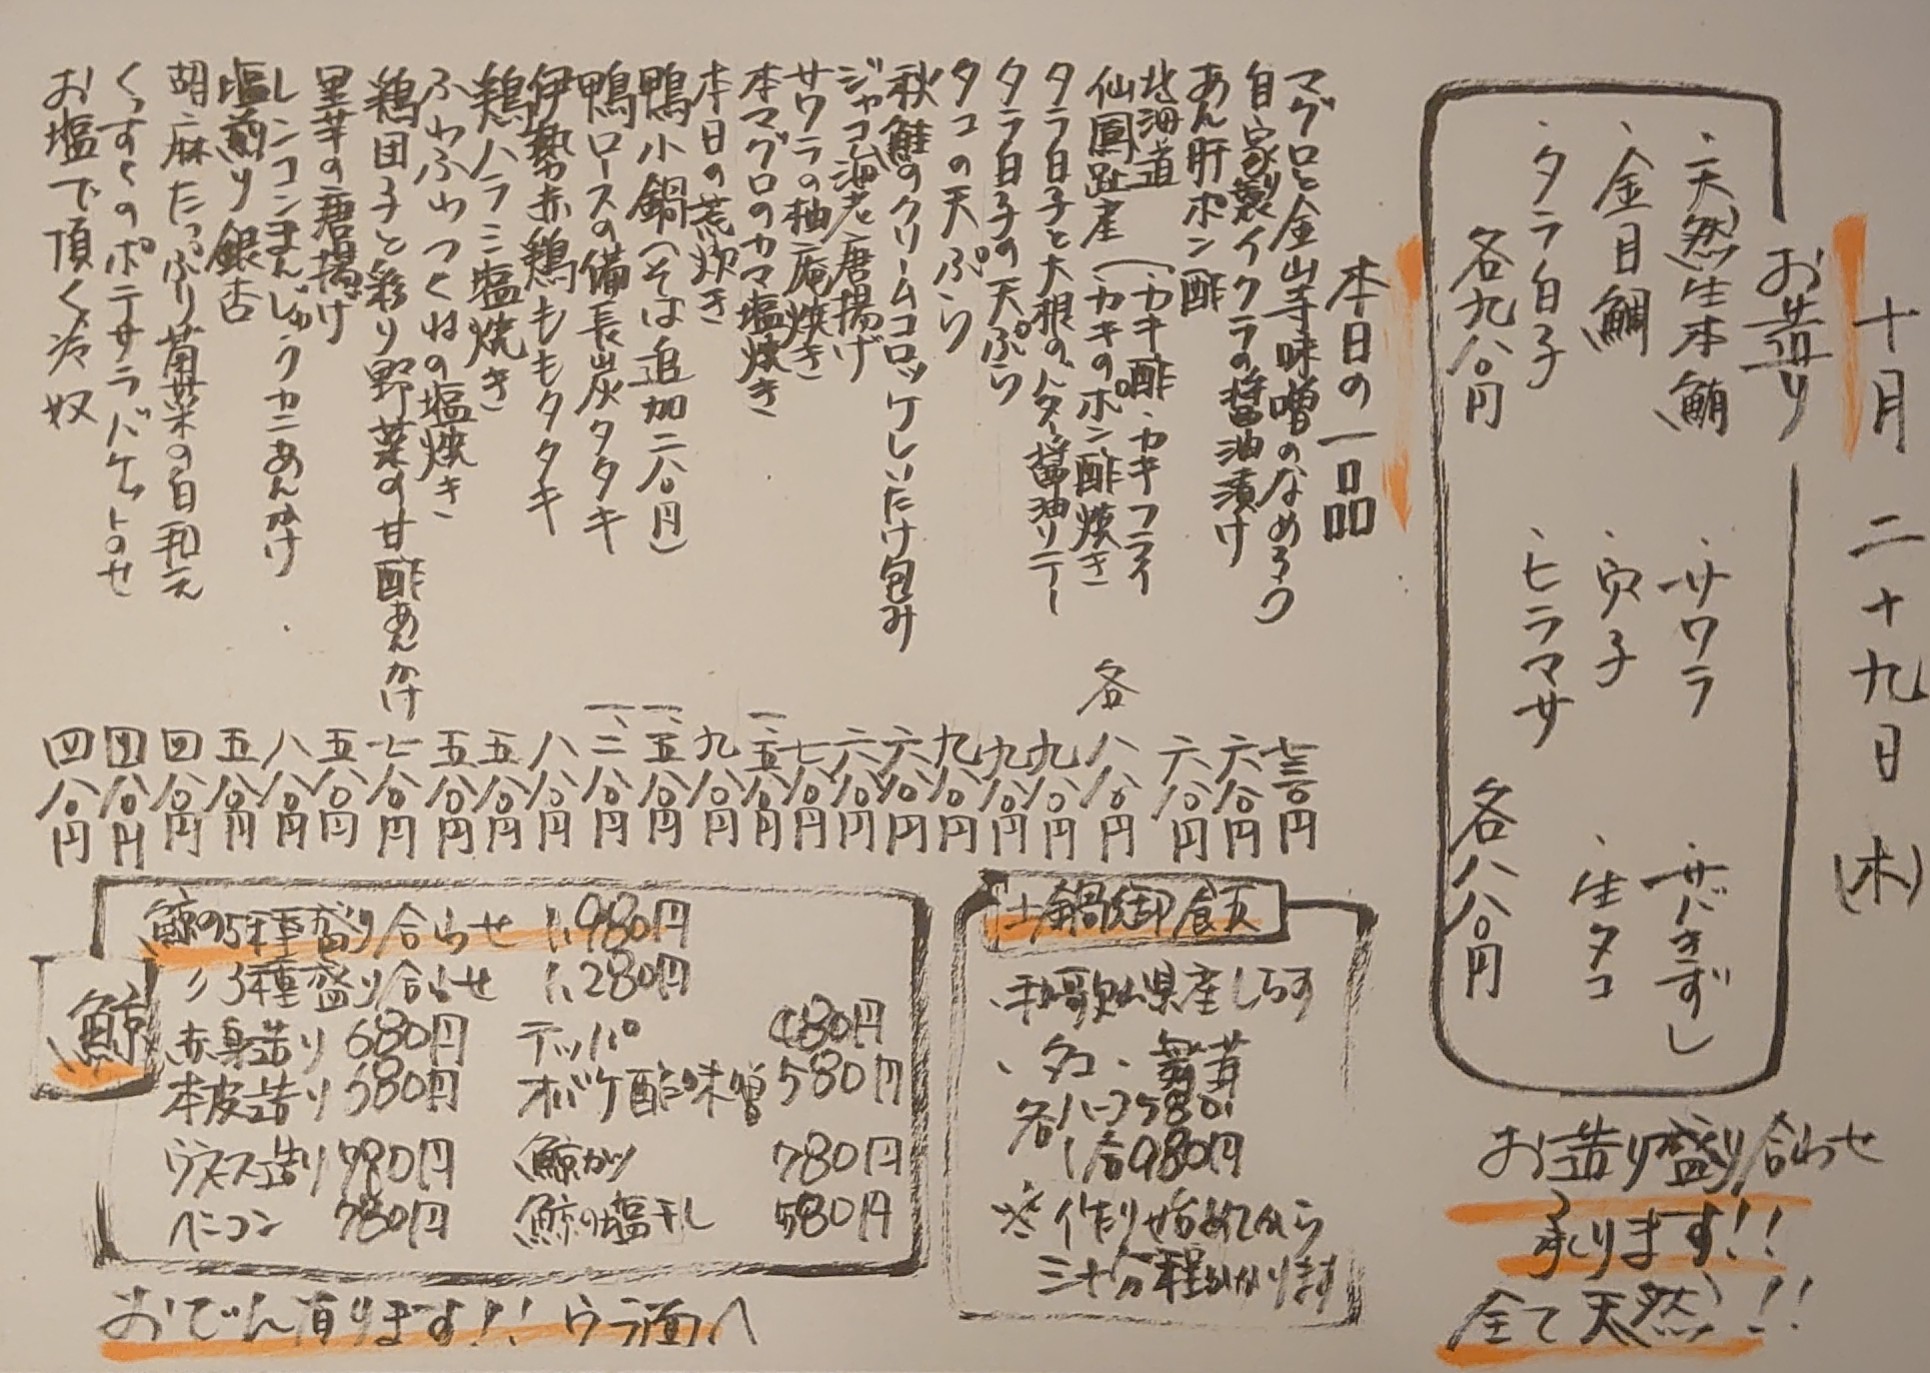 十月二十九日(木)
お造り
・天然生本鮪
・サワラ
・サバきずし
・金目鯛
・穴子
・生タコ
・タラ白子
・ヒラマサ
各九八〇円
各八八〇円
お造り盛り合わせ
承ります!!
全て天然!!
本日の一品
マグロと金山寺味噌のなめろう 七三〇円
自家製イクラの醤油漬け 六八〇円
あん肝ポン酢 六八〇円
北海道
仙鳳趾産(・カキ酢・カキフライ
・カキのポン酢焼き 各八八〇円
タラ白子と大根のバター醤油ソテー 九八〇円
タラ白子の天ぷら 九八〇円
タコの天ぷら 九八〇円
秋鮭のクリームコロッケしいたけ包み 六八〇円
ジャコ海老唐揚げ 六八〇円
サワラの柚庵焼き 七八〇円
本マグロのカマ塩焼き 一、五八〇円
本日の荒炊き 九八〇円
鴨小鍋(そば追加二八〇円) 一、五八〇円
鴨ロースの備長炭タタキ 一、二八〇円
伊勢赤鶏ももタタキ 八八〇円
鶏ハラミ塩焼き 五八〇円
ふわふわつくねの塩焼き 五八〇円
鶏団子と彩り野菜の甘酢あんかけ 七八〇円
里芋の唐揚げ 五八〇円
レンコンまんじゅうカニあんかけ 八八〇円
塩煎り銀杏 五八〇円
胡麻たっぷり菊菜の白和え 四八〇円
くずくのポテサラバケットのせ 四八〇円
お塩で頂く冷奴 四八〇円
土鍋御飯
・和歌山県産しらす
・タコ・舞茸
各ハーフ580円
1合980円
※作り始めてから
三十分程かかります
鯨
鯨の5種盛り合わせ 1,980円
〃3種盛り合わせ 1,280円
赤身造り 680円 テッパ 480円
本皮造り 580円 オバケ酢味噌 580円
ウネス造り 780円 鯨カツ 780円
ベーコン 780円 鯨の塩干し 580円
おでん有ります!! ウラ面へ